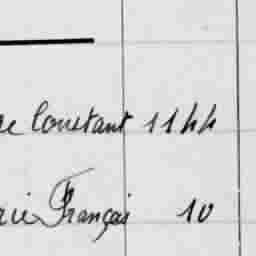 re Constant 1144
rie Français 10